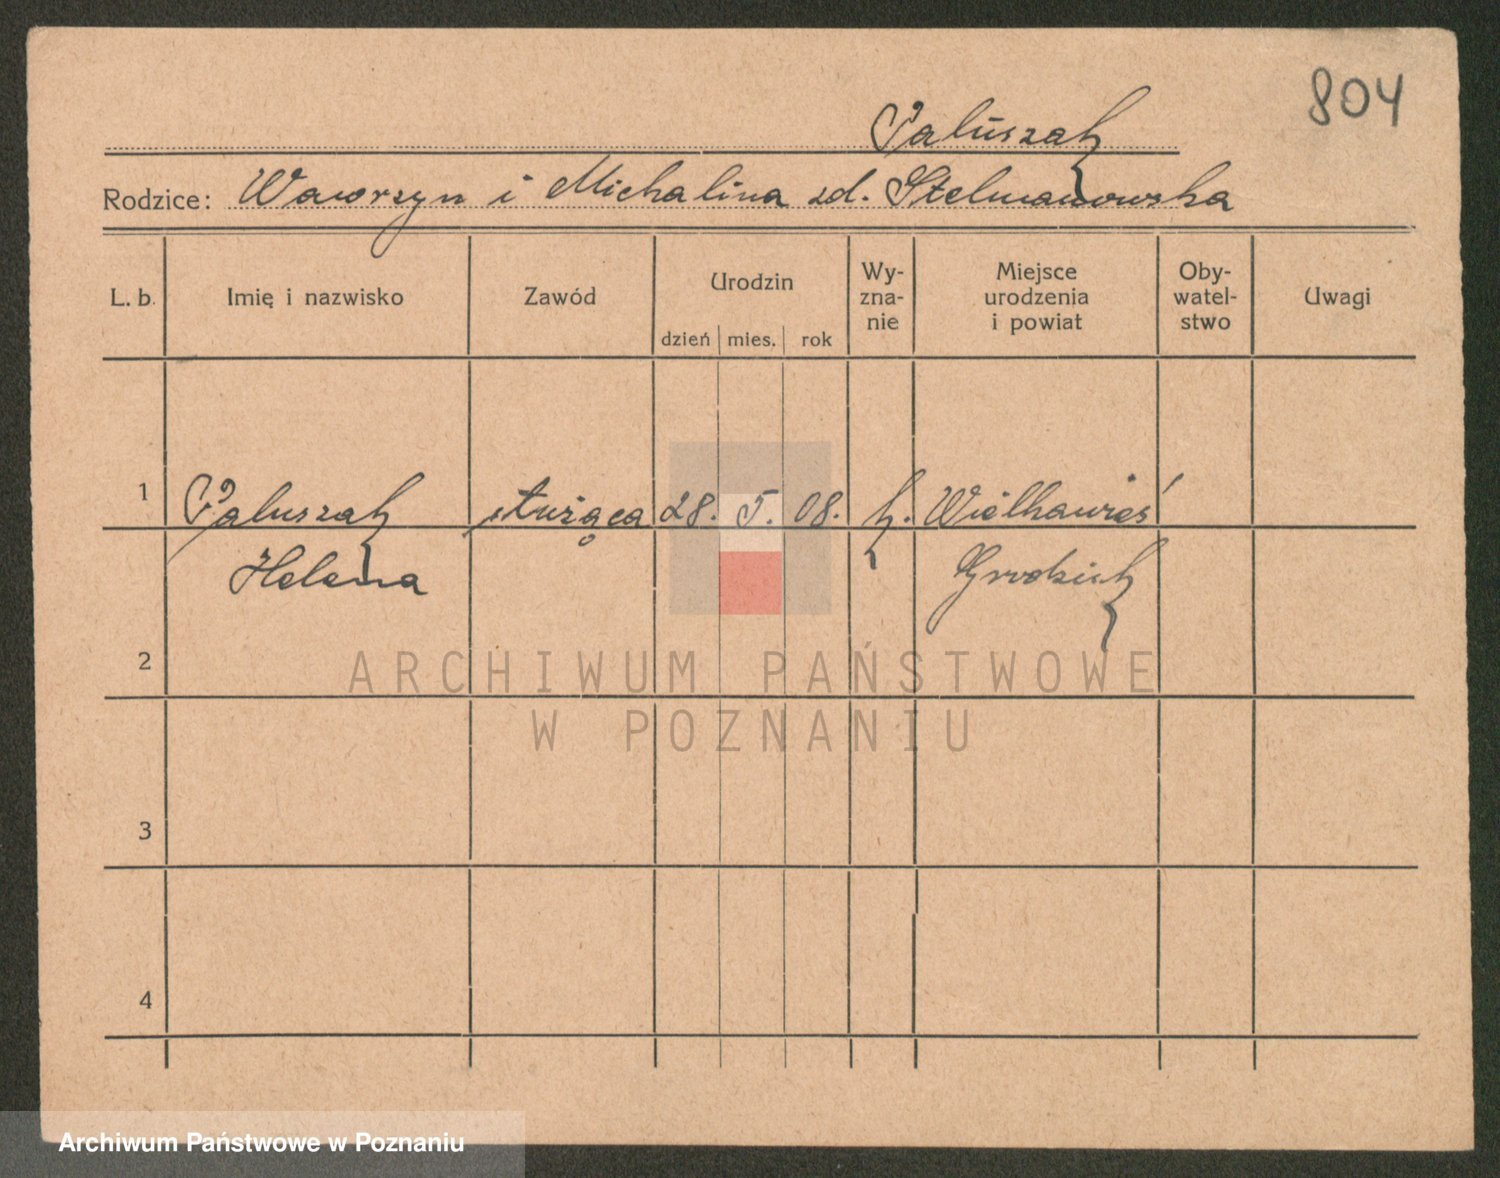 804
Paluszak
Rodzice: Wawrzyn i Michalina zd. Stelmanowska
L. b. Imię i nazwisko Zawód Urodzin Wy-zna-nie Miejsce urodzenia i powiat Oby-watel-stwo Uwagi
dzień mies. rok
1 Paluszak służąca 28. 5. 08. k. Wielkawieś
Helena Grodzisk
2
ARCHIWUM PAŃSTWOWE
W POZNANIU
3
4
Archiwum Państwowe w Poznaniu